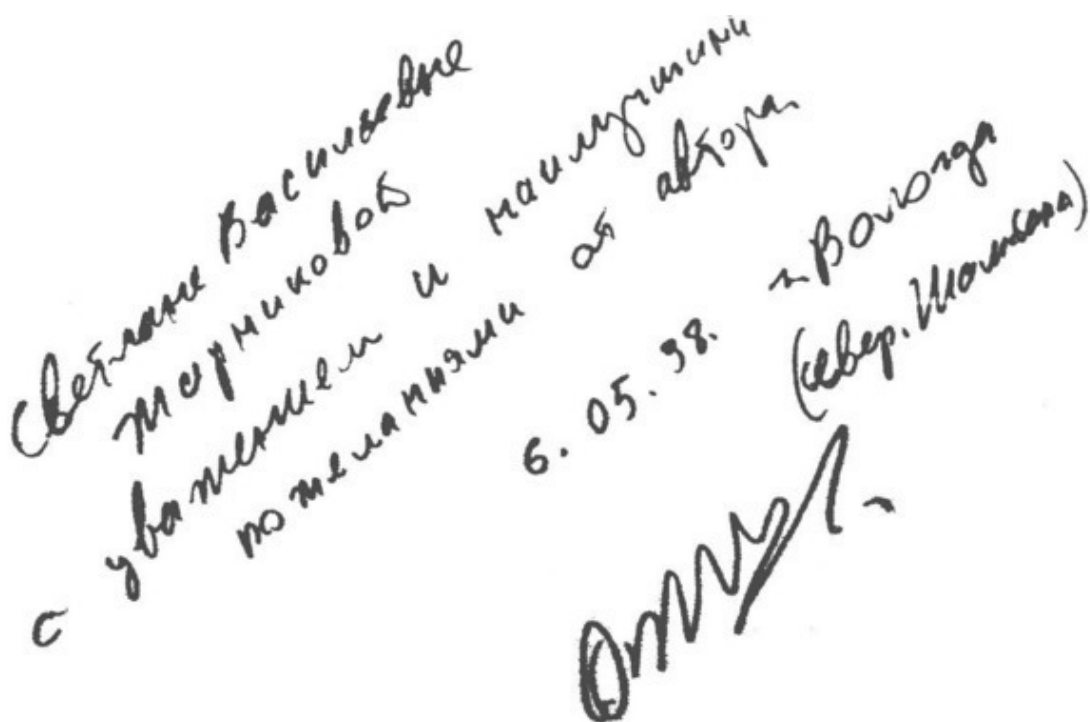 Светлане Васильевне
Жарниковой
с уважением и наилучшими
пожеланиями от автора
6. 05. 98. г. Вологда
(север. Шамбала)